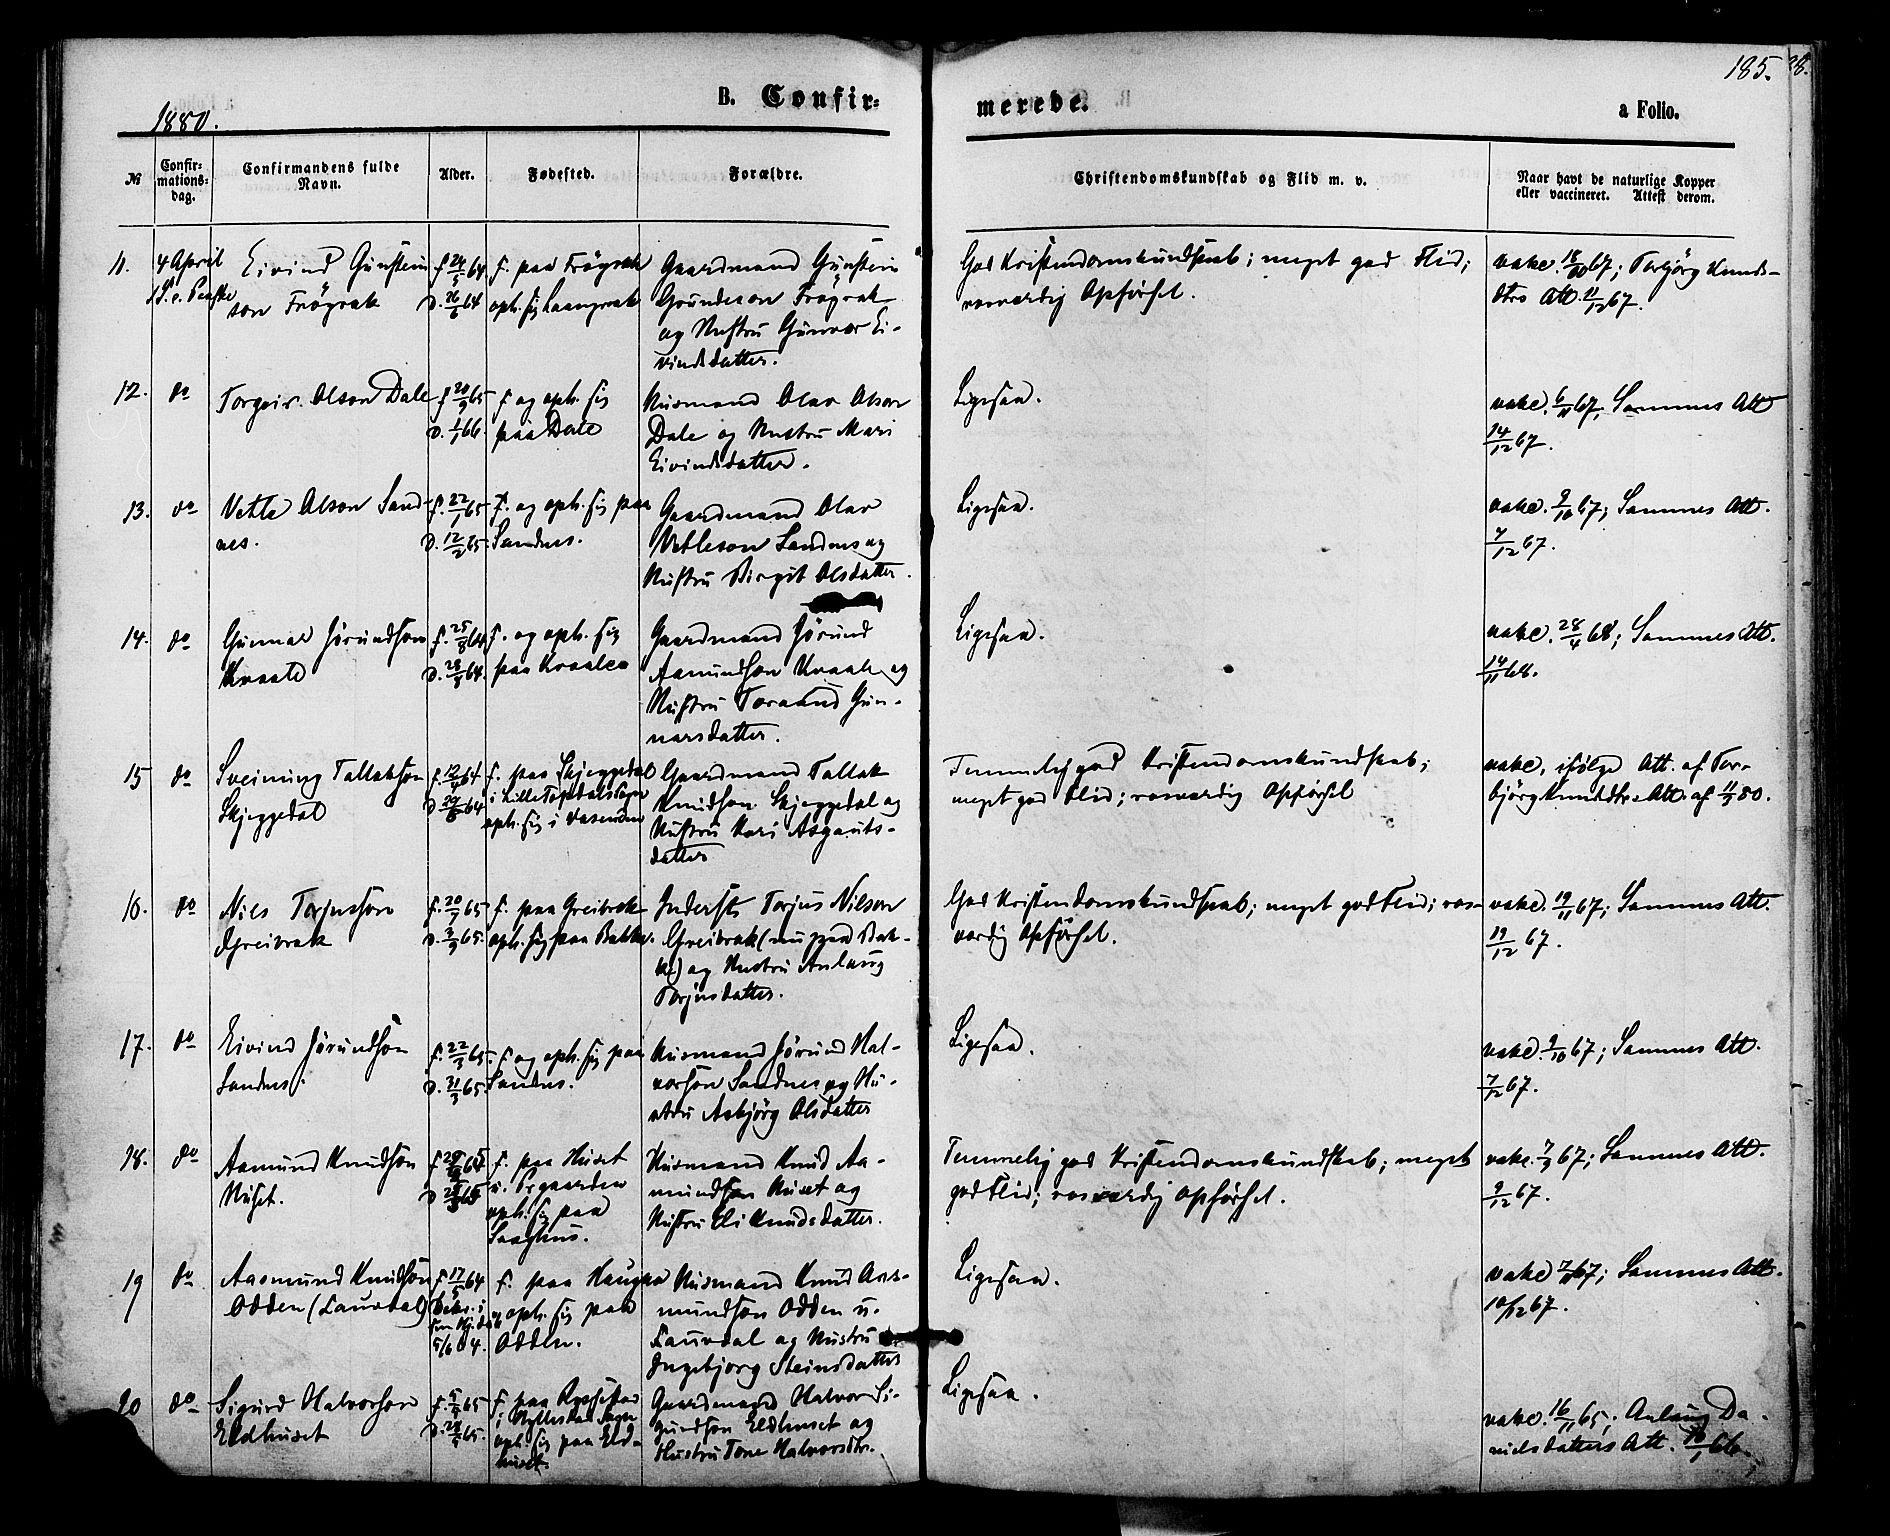 185.
1880.
B. Confir-
merede.
a Folio.
№
Confir-
mations-
dag.
Confirmandens fulde
Navn.
Alder.
Fødested.
Forældre.
Christendomskundskab og Flid m. v.
Naar havt de naturlige Kopper
eller vaccineret. Attest derom.
11.
4 April
Eivind Gunstein-
son Frøyrak
f. 24/5 64
d. 26/6 64
f. paa Frøyrak
oph. sig Laangrak
Gaardmand Gunstein
Grundeson Frøyrak
og Hustru Gunvor Ei-
vindsdatter.
God Kristendomskundskab; meget god Flid;
rosværdig Opførsel.
vakc. 18/10 67; Torbjørg Knuds-
dtrs Att. 11/12 67.
12.
do
Torgeir Olson Dale
f. 20/9 65
d. 1/1 66.
f. og oph. sig
paa Dale
Husmand Olav Olson
Dale og Hustru Mari
Eivindsdatter.
Ligesaa.
vakc. 6/11 67; Sammes Att
14/12 67.
13.
do
Vetle Olson Sand-
nes.
f. 22/1 65
d. 12/2 65
f. og oph. sig paa
Sandnes.
Gaardmand Olav
Vetleson Sandnes og
Hustru Birgit Olsdatter.
Ligesaa.
vakc. 9/10 67; Sammes Att.
7/12 67.
14.
do
Gunnar Jørundson
Kvaale
f. 25/8 64
d. 28/8 64
f. og oph. sig
paa Kvaale
Gaardmand Jørund
Aamundson Kvaale og
Hustru Toraand Gun-
narsdatter.
Ligesaa.
vakc. 28/4 68; Sammes Att.
14/11 68.
15
do
Sveinung Tallakson
Skjeggedal
f. 12/4 64
f. paa Skjeggedal
i Lille Topdals Sogn
oph. sig i Vasenden
Gaardmand Tallak
Knudson Skjeggedal og
Hustru Kari Asgauts-
datter
Temmelig god Kristendomskundskab;
meget god Flid; rosværdig Opførsel
vakc. ifølge Att. af Tor-
bjørg Knudsdtrs Att. af 11/3 80.
16.
do
Nils Torjusson
Greibrok
f. 20/7 65
d. 3/9 65.
f. paa Greibrok
oph. sig paa Bakke.
Inderst Torjus Nilson
Greibrok (nu paa Bak-
ke) og Hustru Anlaug
Torjusdatter.
God Kristendomskundskab; meget god Flid; ros-
værdig Opførsel.
vakc. 19/11 67; Sammes Att.
19/12 67.
17.
do
Eivind Jørundson
Sandnes.
f. 22/3 65
d. 31/3 65.
f. og oph. sig paa
Sandnes.
Husmand Jørund Hal-
vorson Sandnes og Hu-
stru Asbjørg Olsdatter
Ligesaa.
vakc. 9/10 67; Sammes Att.
7/12 67.
18.
do
Aamund Knudson
Huset.
f. paa Huset
u. Øygaarden
oph. sig paa
Husmand Knud Aa-
mundson Huset og
Hustru Eli Knudsdatter.
Temmelig god Kristendomskundskab; meget
god Flid; rosværdig Opførsel.
vakc. 7/9 67; Sammes Att.
9/12 67.
19
do
Aasmund Knudson
Odden (Laurdal)
f. 17/5 64
5/6 64.
f. paa Haugen
oph. sig paa
Odden.
Husmand Knud Aas-
mundson Odden u.
Laurdal og Hustru
Ingebjørg Steinsdatter
Ligesaa.
vakc 7/11 67; Sammes Att.
10/12 67.
20
do
Sigurd Halvorson
Eldhuset
f. paa Rysstad
i Hyllestad Sogn
oph. sig paa Eld-
huset.
Gaardmand Halvor Si-
gurdson Eldhuset og
Hustru Tone Halvorsdtr.
Ligesaa.
vakc. 16/11 65; Anlaug Da-
nielsdatters Att. 16/1 66.